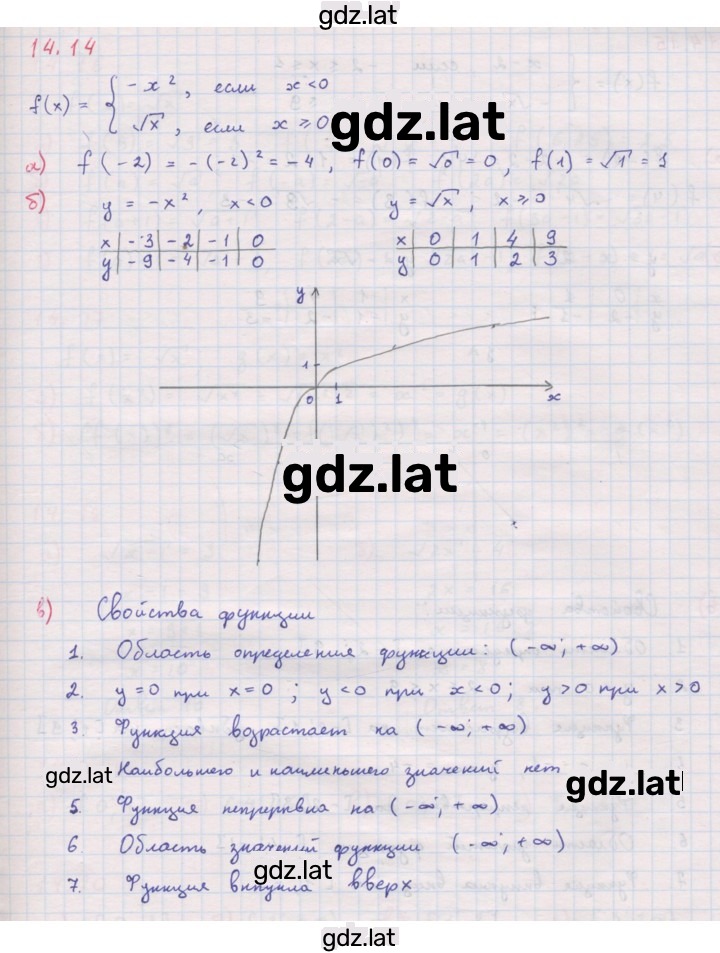 gdz.lat
14.14
f(x) = { -x², если x<0
√x, если x⩾0
gdz.lat
а) f(-2) = -(-2)² = -4, f(0)=√0=0, f(1)=√1=1
б) y = -x², x<0 y = √x, x⩾0
x | -3 | -2 | -1 | 0 x | 0 | 1 | 4 | 9
y | -9 | -4 | -1 | 0 y | 0 | 1 | 2 | 3
y
1
0 1 x
gdz.lat
в) Свойства функции
1. Область определения функции: (-∞; +∞)
2. y=0 при x=0; y<0 при x<0; y>0 при x>0
3. Функция возрастает на (-∞; +∞)
gdz.lat
Наибольшего и наименьшего значений нет
gdz.lat
5. Функция непрерывна на (-∞; +∞)
6. Область значений функции (-∞; +∞)
gdz.lat
7. Функция выпукла вверх
gdz.lat